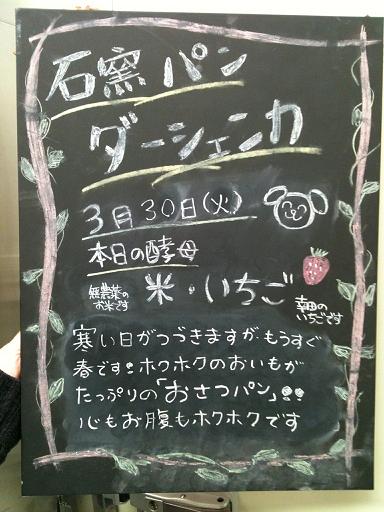 石窯パン
ダーシェンカ
3月30日(火)
本日の酵母
米・いちご
無農薬の
お米です
幸田の
いちごです
寒い日がつづきますが、もうすぐ
春です!ホクホクのおいもが
たっぷりの「おさつパン」!!
心もお腹もホクホクです